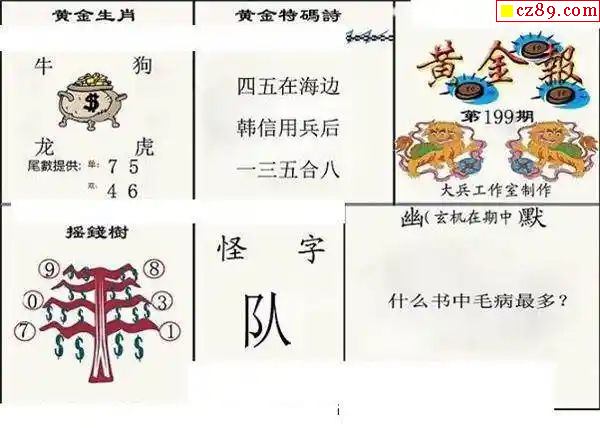 cz89.com
黄金生肖
牛 狗
$
龙 虎
尾數提供: 单: 7 5
双: 4 6
黄金特碼詩
四五在海边
韩信用兵后
一三五合八
黄金報
第199期
大兵工作室制作
摇錢樹
9 8
0 3
7 1
$ $ $ $ $ $ $
怪 字
队
幽(玄机在期中)默
什么书中毛病最多?
i